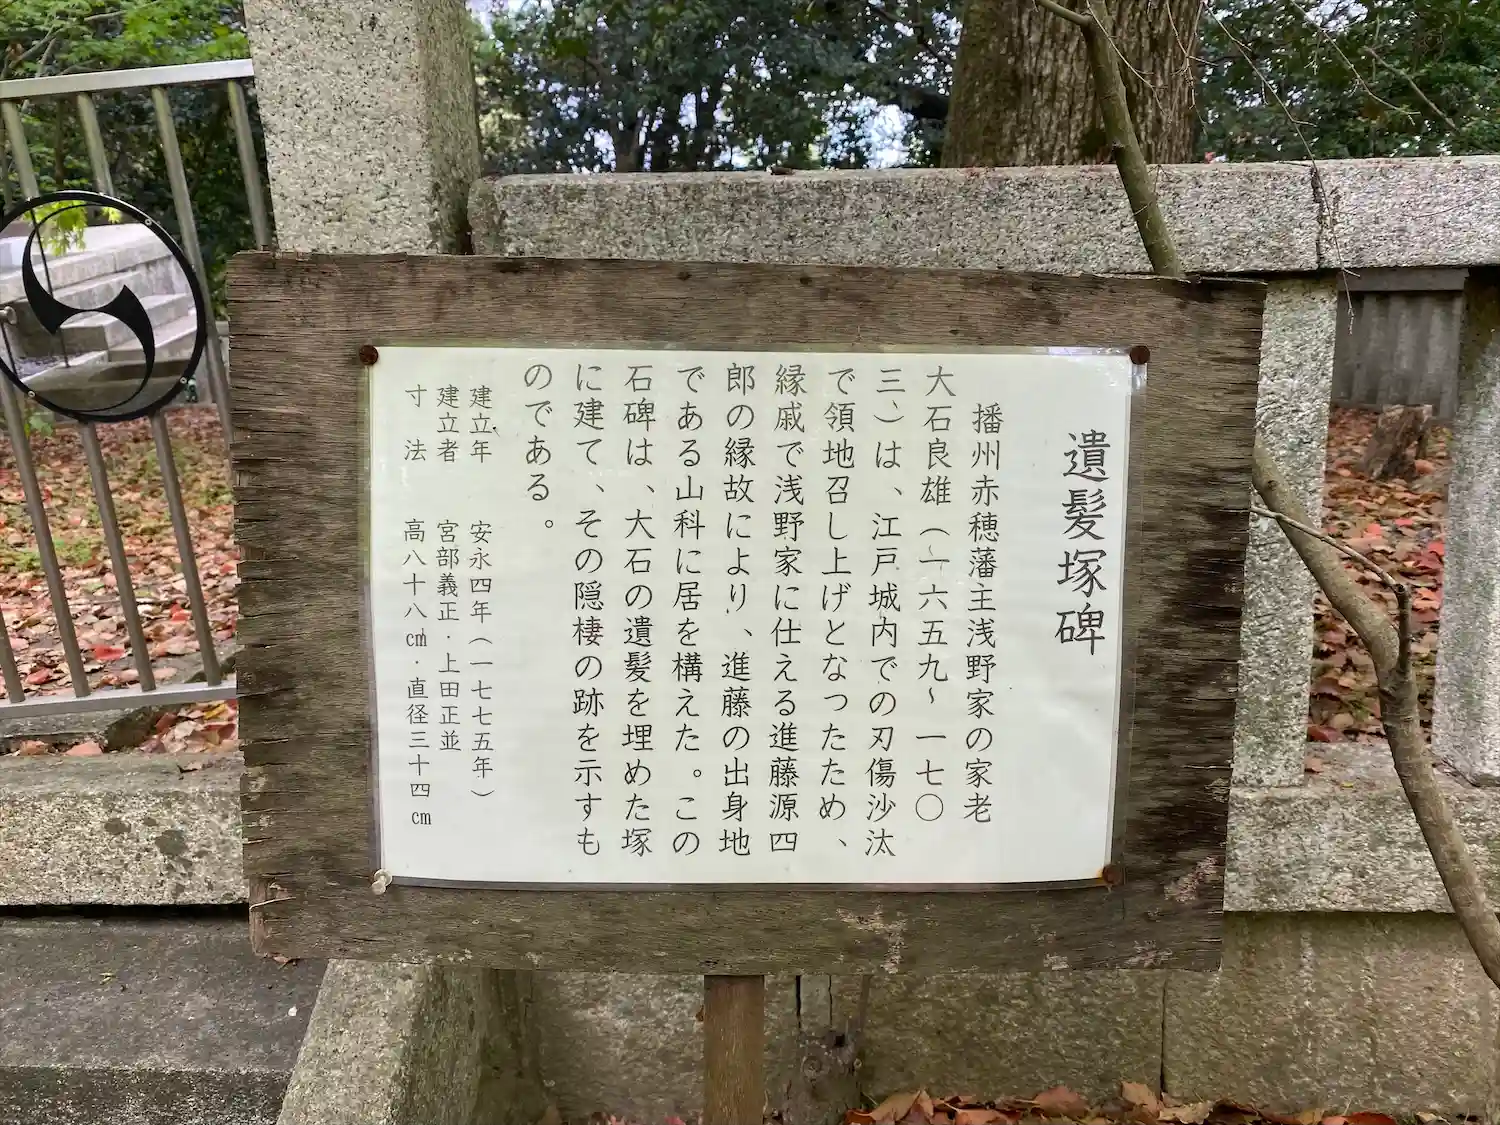 遺髪塚碑
播州赤穂藩主浅野家の家老
大石良雄（一六五九～一七〇
三）は、江戸城内での刃傷沙汰
で領地召し上げとなったため、
縁戚で浅野家に仕える進藤源四
郎の縁故により、進藤の出身地
である山科に居を構えた。この
石碑は、大石の遺髪を埋めた塚
に建て、その隠棲の跡を示すも
のである。
建立年　安永四年（一七七五年）
建立者　宮部義正・上田正並
寸　法　高八十八㎝・直径三十四㎝